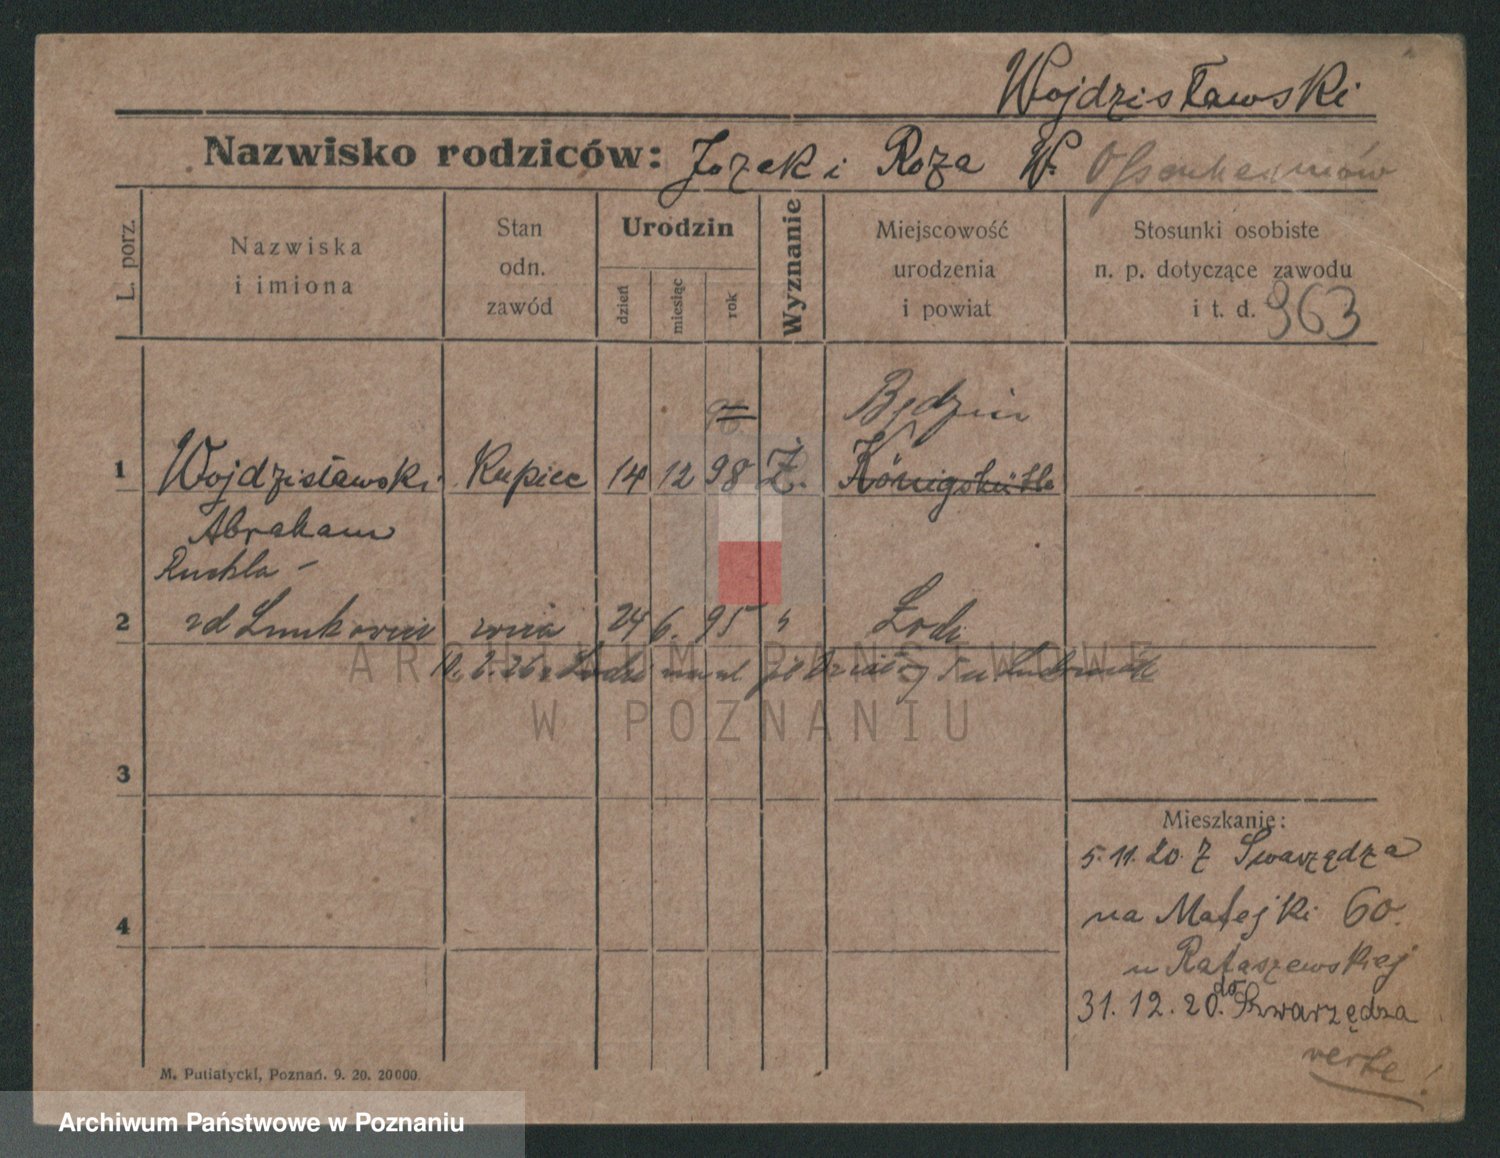 Wojdzisławski
Nazwisko rodziców: Jozek i Roza W.
L. porz.
Nazwiska
i imiona
Stan
odn.
zawód
Urodzin
dzień
miesiąc
rok
Wyznanie
Miejscowość
urodzenia
i powiat
Stosunki osobiste
n. p. dotyczące zawodu
i t. d. 963
Będzin
1 Wojdzisławski Kupiec 14 12 98 Ż. Königshütte
Abraham
Ruchla -
2 24 6. 95 " Łodi
ARCHIWUM PAŃSTWOWE
W POZNANIU
3
Mieszkanie:
5.11.20. Z Swarzędza
4
na Matejki 60.
u Rataszewskiej
31.12.20. do Szwarzędza
verte!
M. Putiatycki, Poznań. 9. 20. 20000.
Archiwum Państwowe w Poznaniu